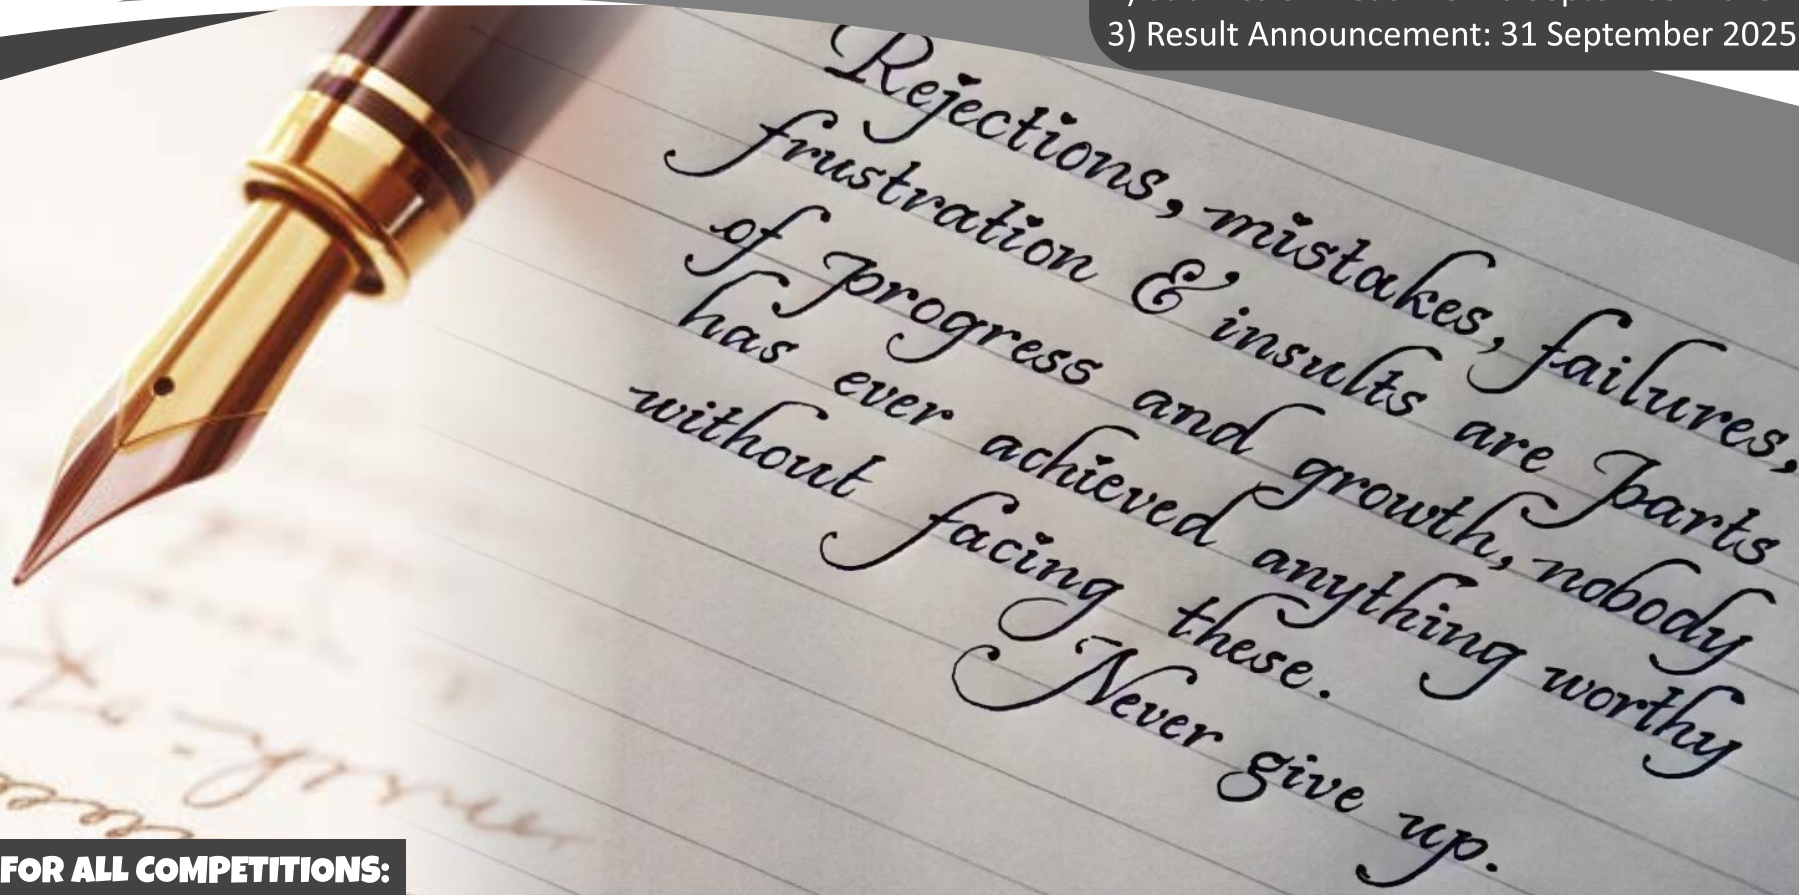 3) Result Announcement: 31 September 2025
Rejections, mistakes, failures,
frustration & insults are parts
of progress and growth, nobody
has ever achieved anything worthy
without facing these.
Never give up.
FOR ALL COMPETITIONS: